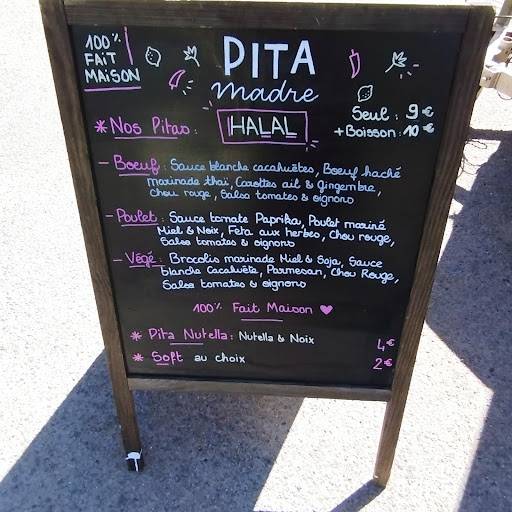 100% FAIT MAISON
PITA
Madre
HALAL
Seul : 9€
+ Boisson : 10€
* Nos Pitas :
- Boeuf : Sauce blanche cacahuètes, Boeuf haché
marinade thaï, Carottes ail & Gingembre,
Chou rouge, Salsa tomates & oignons
- Poulet : Sauce tomate Paprika, Poulet mariné
Miel & Noix, Feta aux herbes, Chou rouge,
Salsa tomates & oignons
- Végé : Brocolis marinade Miel & Soja, Sauce
blanche Cacahuète, Parmesan, Chou Rouge,
Salsa tomates & oignons
100% Fait Maison ♥
* Pita Nutella : Nutella & Noix 4€
* Soft au choix 2€